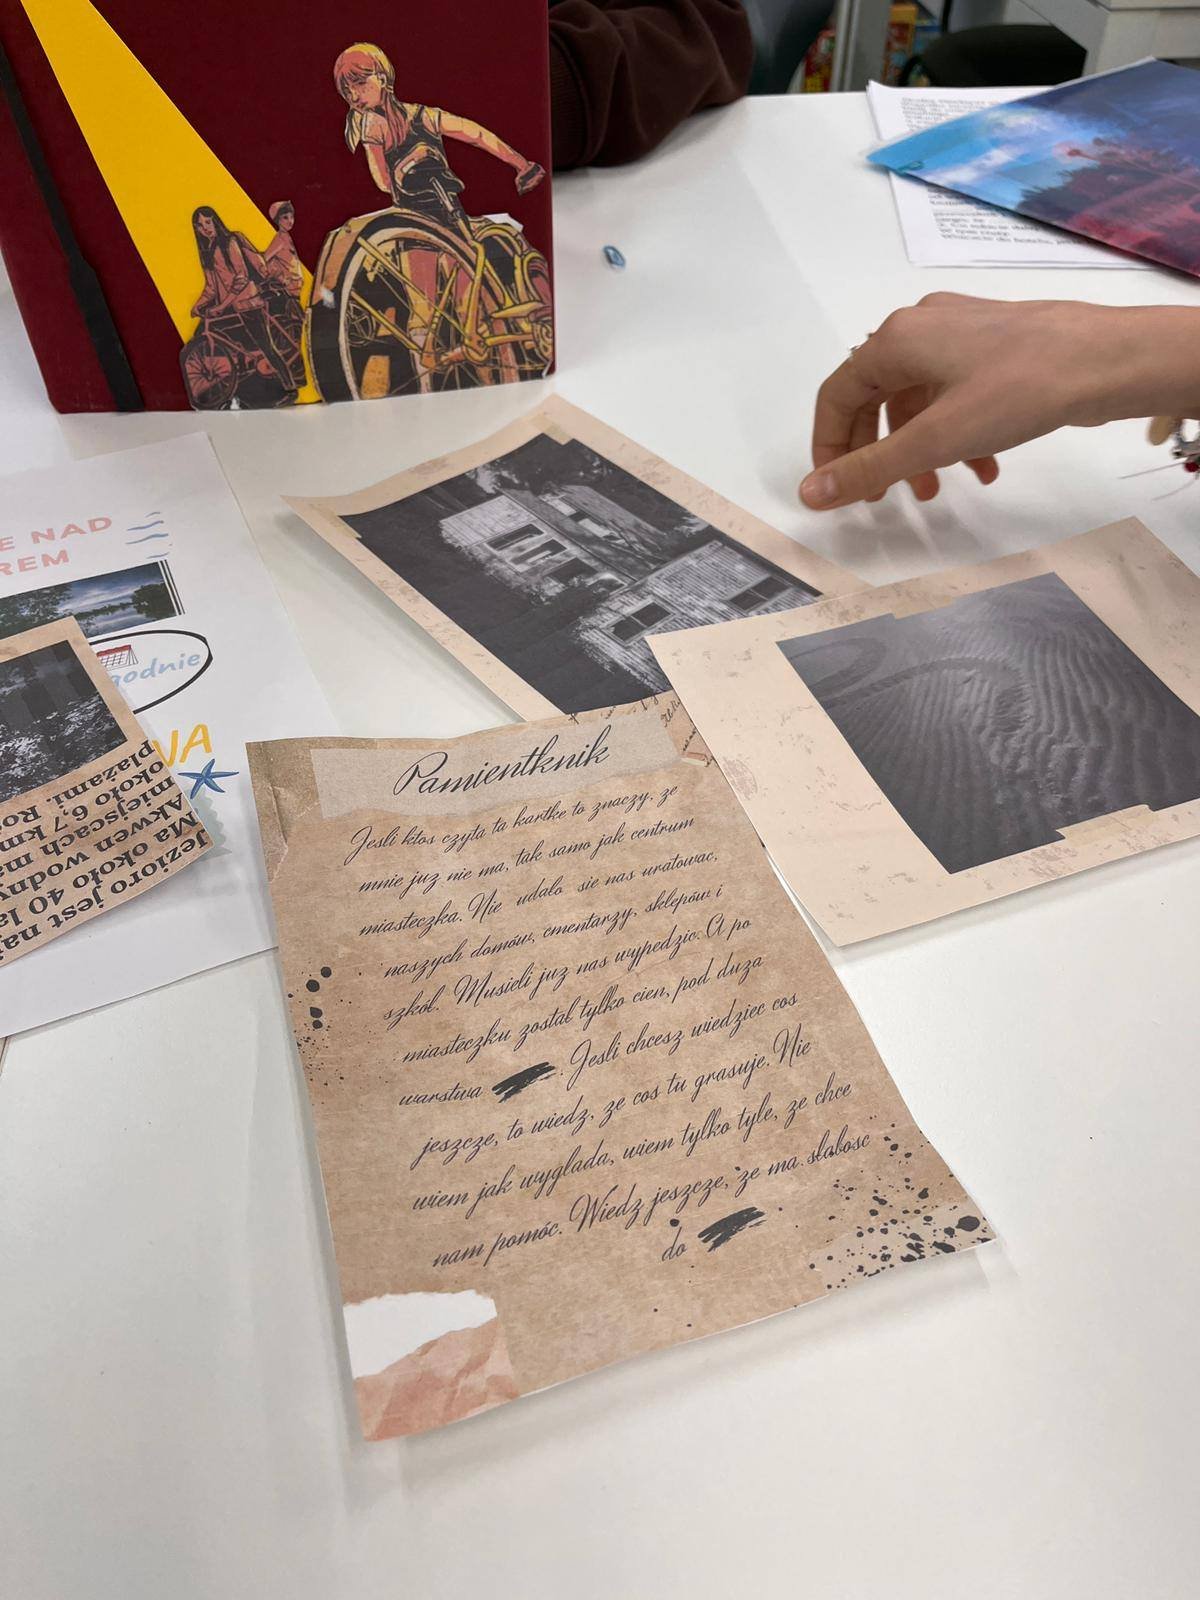 E NAD
REM
godnie
WA
Jezioro jest naj
Ma około 40 la
Akwen wodny
miejscach ma
około 6,7 km
plażami. Ro
Pamientknik
Jesli ktos czyta ta kartke to znaczy, ze
mnie juz nie ma, tak samo jak centrum
miasteczka. Nie udalo sie nas uratowac,
naszych domów, cmentarzy, sklepów i
szkól. Musieli juz nas wypedzic. A po
miasteczku zostal tylko cien, pod duza
warstwa . Jesli chcesz wiedziec cos
jeszcze, to wiedz, ze cos tu grasuje. Nie
wiem jak wyglada, wiem tylko tyle, ze chce
nam pomóc. Wiedz jeszcze, ze ma slabosc
do